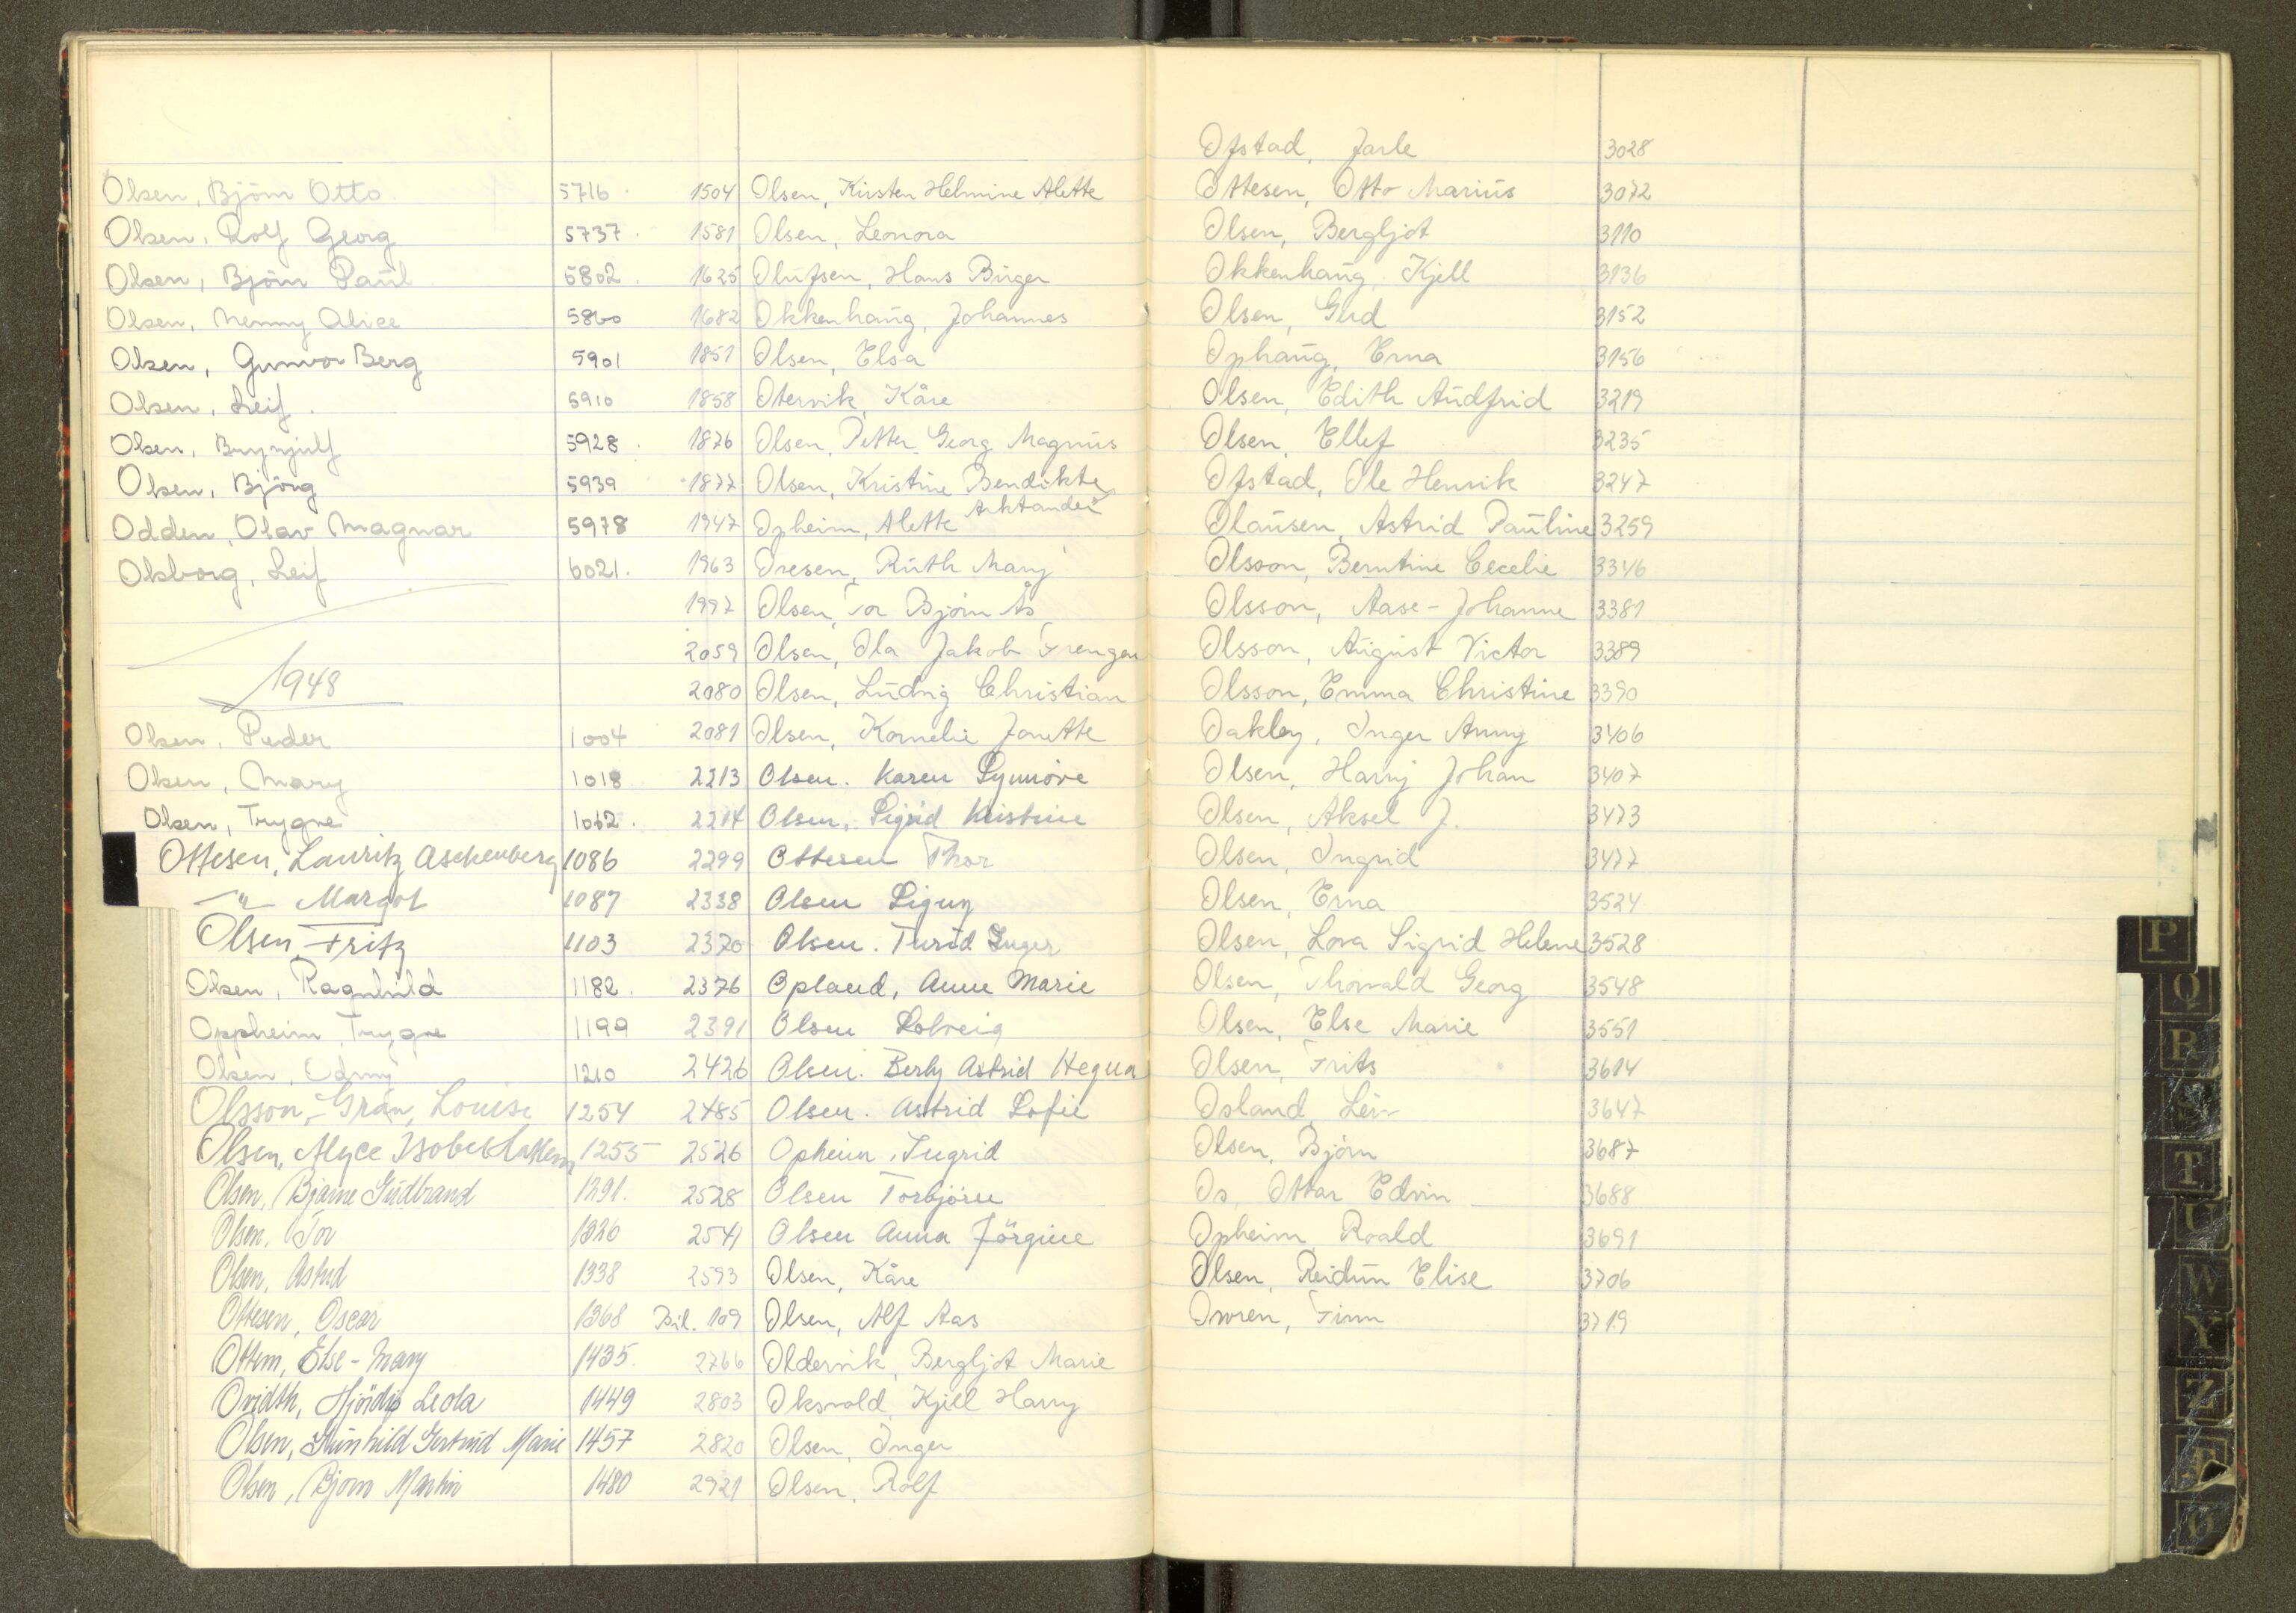 Olsen, Bjørn Otto 5716.
Olsen, Rolf Georg 5737.
Olsen, Bjørn Paul 5802.
Olsen, Nenny Alice 5860
Olsen, Gunvor Berg 5901
Olsen, Leif. 5910
Olsen, Brynjulf 5928.
Olsen, Bjørg 5939
Odden, Olav Magnar 5978
Olsborg, Leif 6021.
1948
Olsen, Peder 1004
Olsen, Mary 1018
Olsen, Trygve 1062.
Ottesen, Lauritz Aschenberg 1086
-"- Margot 1087
Olsen, Fritz 1103
Olsen, Ragnhild 1182.
Oppheim, Trygve 1199
Olsen, Edny 1210
Olsson, Grän, Louise 1254
Olsen, Alyce Isobel 1255
Olsen, Bjarne Gudbrand 1291.
Olsen, Tor 1320
Olsen, Astrid 1338
Ottesen, Oscar 1368
Ottem, Else-Mary 1435.
Ovidth, Hjördis Leola 1449
Olsen, Gunhild Gertrud Marie 1457
Olsen, Bjørn Martin 1480
1504 Olsen, Kirsten Helmine Alette
1581 Olsen, Leonora
1625 Olufsen, Hans Birger
1682 Okkenhaug, Johannes
1851 Olsen, Elsa
1858 Otervik, Kåre
1876 Olsen, Petter Georg Magnus
1877 Olsen, Kristine Bendikte
Arktander
1947 Opheim, Alette
1963 Oresen, Ruth Mary
1997 Olsen, Tor Bjørn Ås
2059 Olsen, Ola Jakob Trengen
2080 Olsen, Ludvig Christian
2081 Olsen, Kornelie Jonette
2213 Olsen. Karen Synnöve
2214 Olsen, Sigrid Kristine
2299 Ottesen Thor
2338 Olsen Signy
2370 Olsen. Turid Inger
2376 Opland, Anne Marie
2391 Olsen Solveig
2426 Olsen. Berly Astrid Hegna
2485 Olsen. Astrid Sofie
2526 Opheim, Ingrid
2528 Olsen Torbjörn
2541 Olsen Anna Jörgine
2593 Olsen, Kåre
Bil. 109 Olsen, Alf Aas
2766 Oldervik, Bergljot Marie
2803 Oksvold, Kjell Harry
2820 Olsen, Inger
2921 Olsen, Rolf
Ofstad, Jarle 3028
Ottesen, Otto Marius 3072
Olsen, Bergljot 3110
Okkenhaug, Kjell 3136
Olsen, Gerd 3152
Ophaug, Erna 3156
Olsen, Edith Audfrid 3219
Olsen, Ellef 3235
Ofstad, Ole Henrik 3247
Olausen, Astrid Pauline 3259
Olsson, Berntine Cecelie 3346
Olsson, Aase-Johanne 3381
Olsson, August Victor 3389
Olsson, Emma Christine 3390
Oakley, Inger Anny 3406
Olsen, Harry Johan 3407
Olsen, Aksel J. 3473
Olsen, Ingrid 3477
Olsen, Erna 3524
Olsen, Lova Sigrid Helene 3528
Olsen, Thorvald Georg 3548
Olsen, Else Marie 3551
Olsen, Frits 3614
Osland, Leiv 3647
Olsen, Bjørn 3687
Os, Ottar Edvin 3688
Opheim, Roald 3691
Olsen, Reidun Elise 3706
Owren, Finn 3719
P
Q
R
S
T
U
W
Y
Z
Æ
Ø